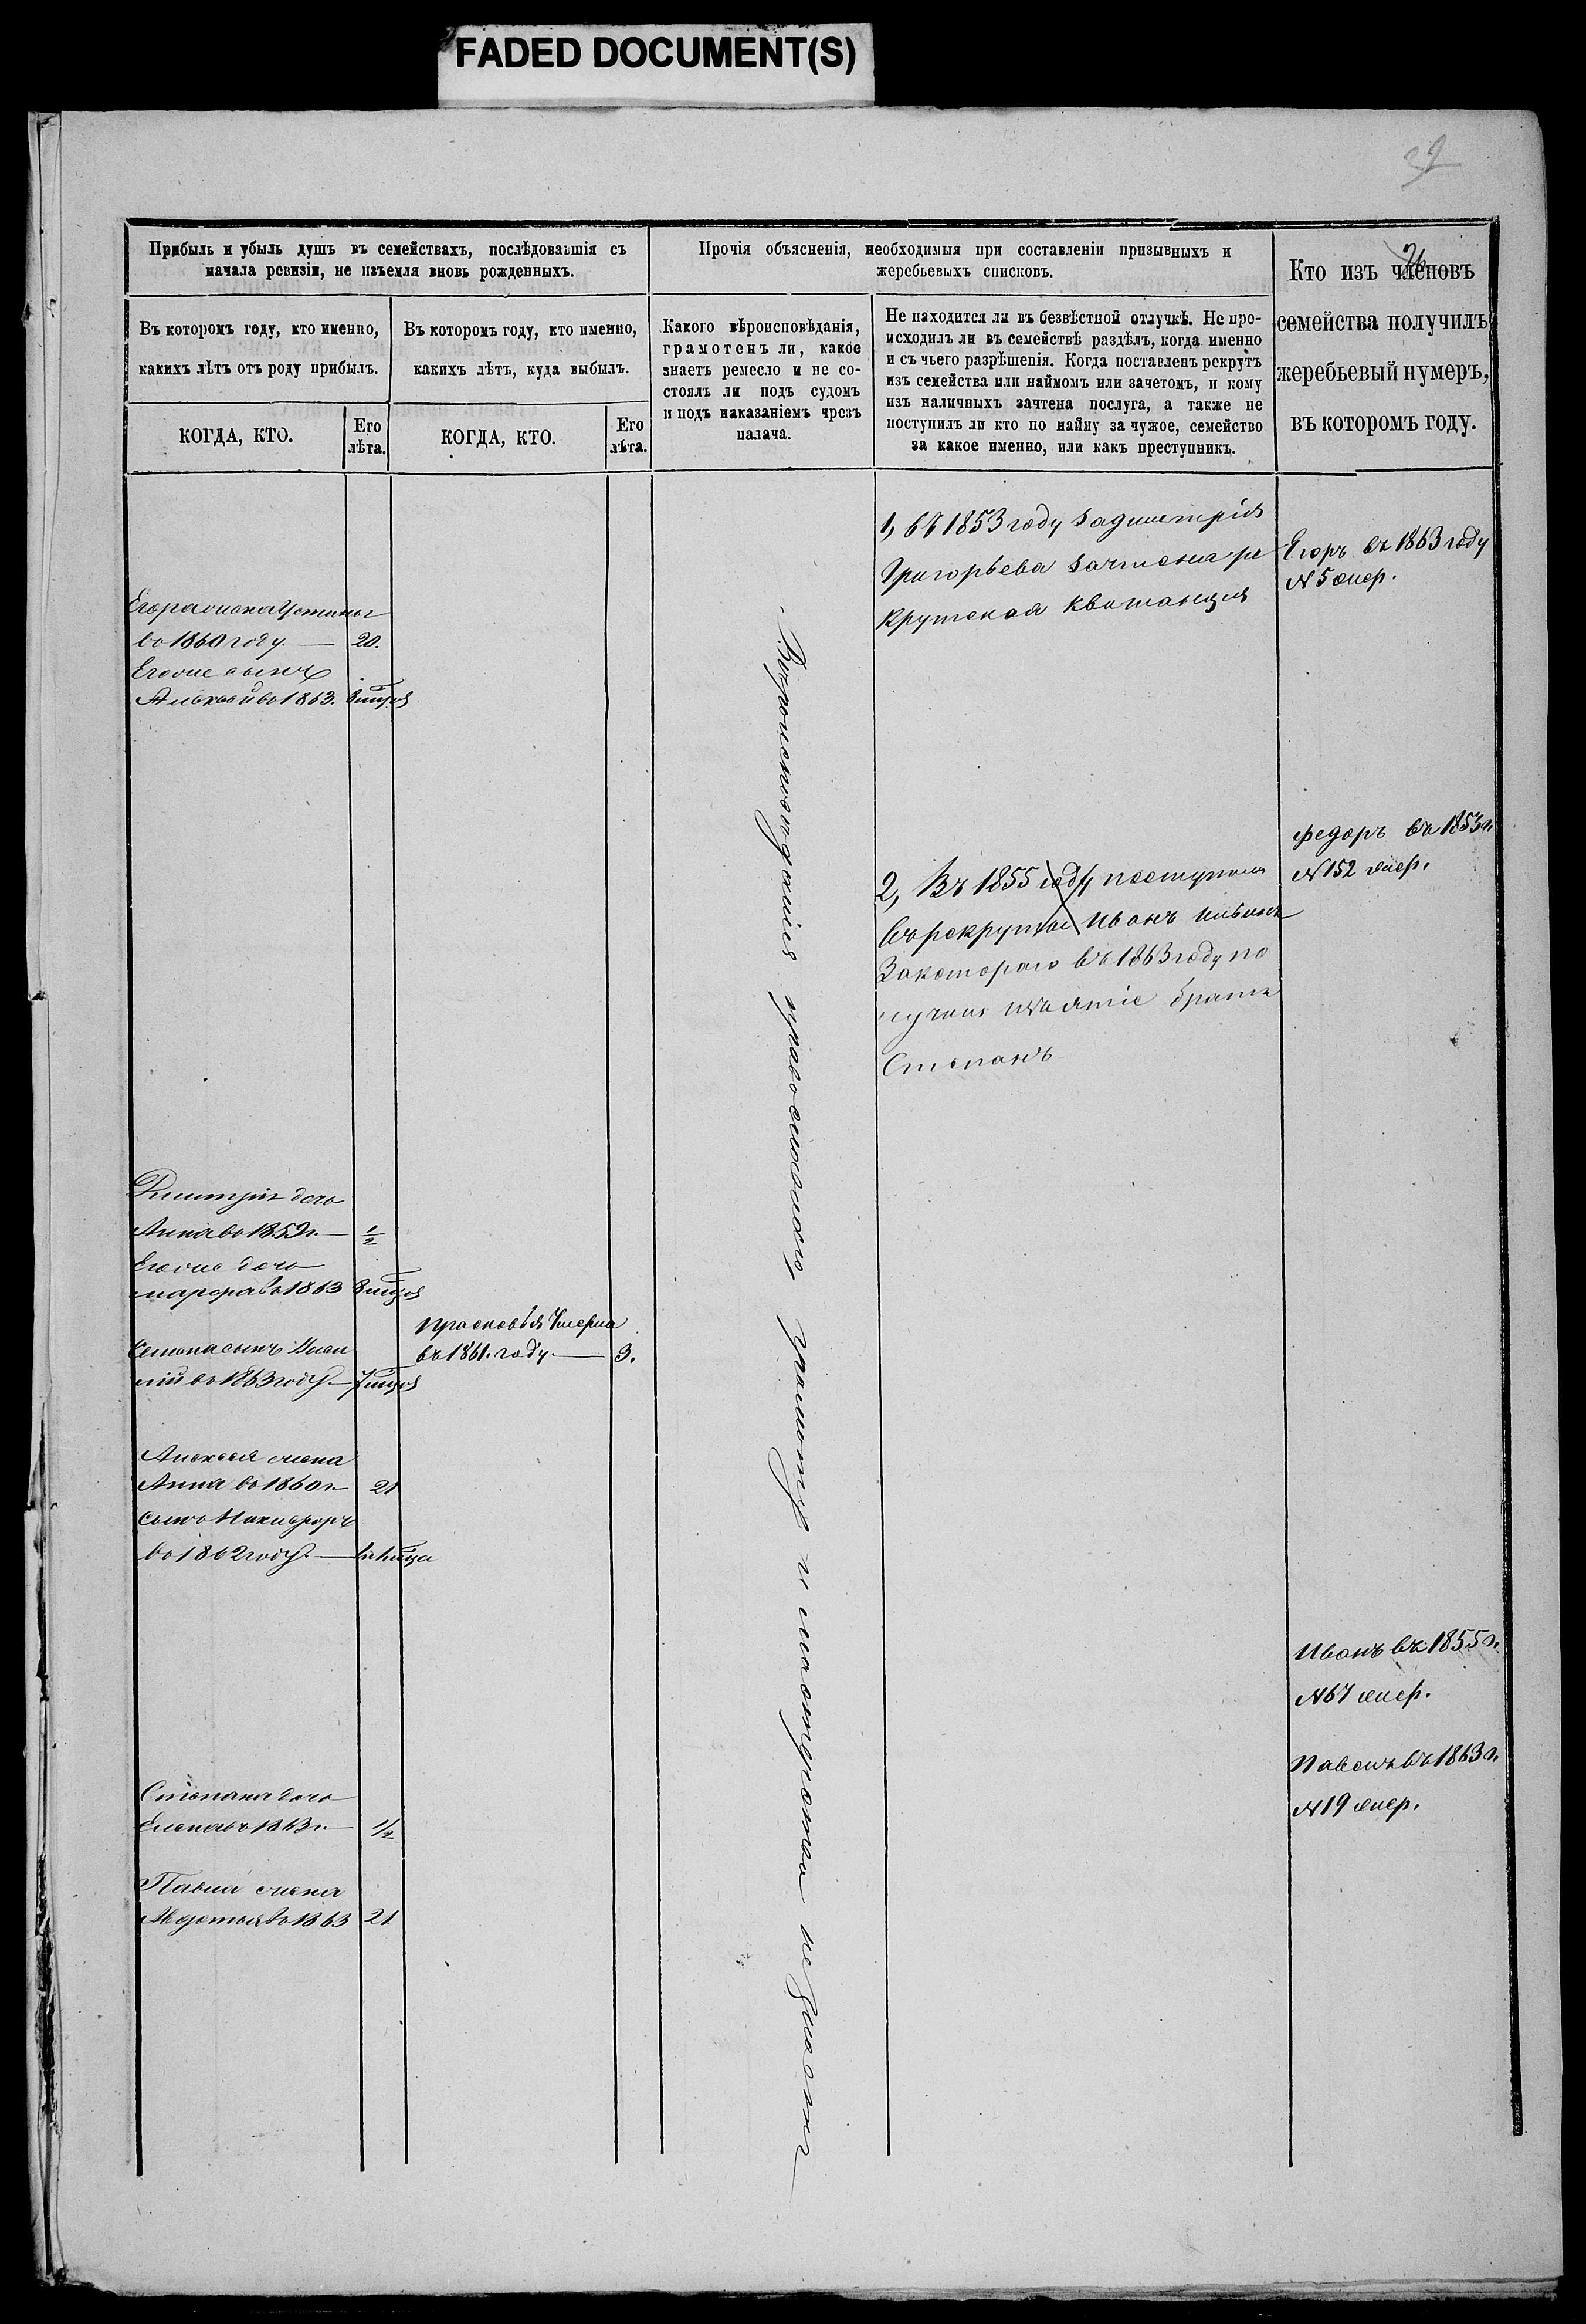 FADED DOCUMENT(S)
39
26
Прибыль и убыль душъ въ семействахъ, послѣдовавшія съ
начала ревизіи, не изъемля вновь рожденныхъ.
Прочія объясненія, необходимыя при составленіи призывныхъ и
жеребьевыхъ списковъ.
Кто изъ членовъ
семейства получилъ
жеребьевый нумеръ,
въ которомъ году.
Въ которомъ году, кто именно,
какихъ лѣтъ отъ роду прибылъ.
Въ которомъ году, кто именно,
какихъ лѣтъ, куда выбылъ.
Какого вѣроисповѣданія,
грамотенъ ли, какое
знаетъ ремесло и не со-
стоялъ ли подъ судомъ
и подъ наказаніемъ чрезъ
палача.
Не находится ли въ безвѣстной отлучкѣ. Не про-
исходилъ ли въ семействѣ раздѣлъ, когда именно
и съ чьего разрѣшенія. Когда поставленъ рекрутъ
изъ семейства или наймомъ или зачетомъ, и кому
изъ наличныхъ зачтена послуга, а также не
поступилъ ли кто по найму за чужое, семейство
за какое именно, или какъ преступникъ.
КОГДА, КТО.
Его
лѣта.
КОГДА, КТО.
Его
лѣта.
Егора жена Устинья
во 1860 году. — 20.
Егоже сынъ
Алексѣй во 1863. 8 мцов
Дмитрія дочь
Анна во 1859 г. — 1/2
Егоже дочь
марфа во 1863 8 мцов
Семена сынъ
во 1863 году — 7 мцов
Алексѣя жена
Анна во 1860 г. — 21
сынъ Никифоръ
во 1862 году. —
Степана дочь
Елена въ 1863 г. — 1/2
Павла жена
Авдотья во 1863 21
прасковья Умерла
въ 1861. году. — 3.
Вѣроисповѣданія православнаго, грамотѣ и мастерства не знаютъ
1, въ 1853 году за дмитрія
Григорьева зачтена ре
крутская квитанція
2, Въ 1855 году поступилъ
въ рекруты Иванъ
За котораго въ 1863 году по
лучилъ изъятіе братъ
Степанъ
Егоръ въ 1863 году
№ 5 жер.
федоръ въ 1853 г.
№ 152 жер.
Иванъ въ 1855 г.
№ 67 жер.
Павелъ въ 1863 г.
№ 19 жер.